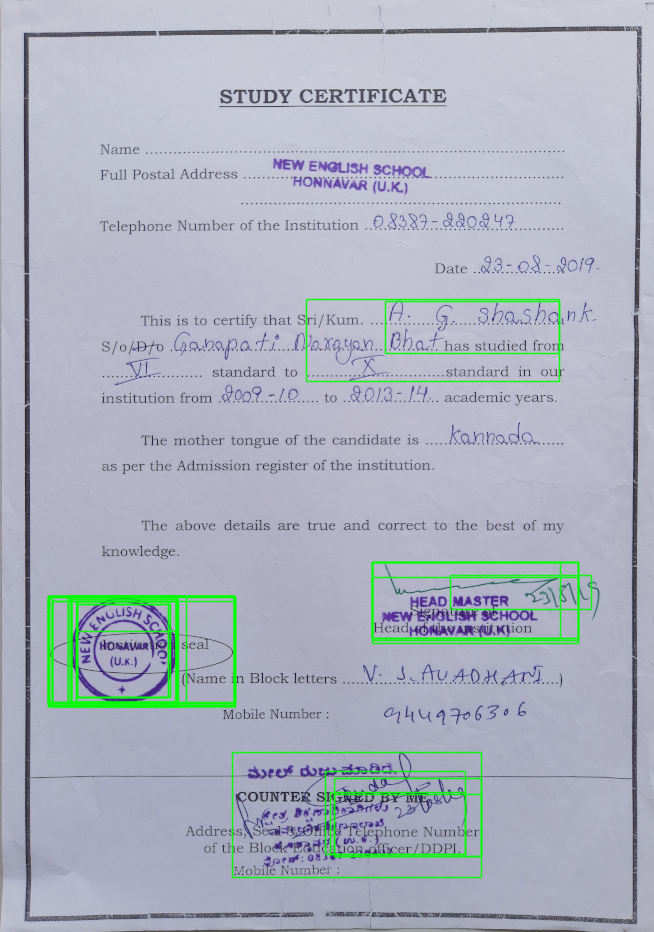 STUDY CERTIFICATE
Name
Full Postal Address NEW ENGLISH SCHOOL
HONNAVAR (U.K.)
Telephone Number of the Institution 08387-220247
Date 23-08-2019.
This is to certify that Sri/Kum. A. G. Shashank.
S/o/D/o Ganapati Narayan Bhat has studied from
VI standard to X standard in our
institution from 2009-10 to 2013-14 academic years.
The mother tongue of the candidate is Kannada
as per the Admission register of the institution.
The above details are true and correct to the best of my
knowledge.
23/8/19
HEAD MASTER
NEW ENGLISH SCHOOL
HONAVAR (U.K)
Signature of
Head of the Institution
NEW ENGLISH SCHOOL
HONAVAR
(U.K.)
seal
(Name in Block letters V. S. AVADHANI)
Mobile Number : 9449706306
ಮೇಲ್ ರುಜು ಮಾಡಿದೆ.
COUNTER SIGNED BY ME
Address, Seal & Office Telephone Number
of the Block Education Officer/DDPI.
Mobile Number :